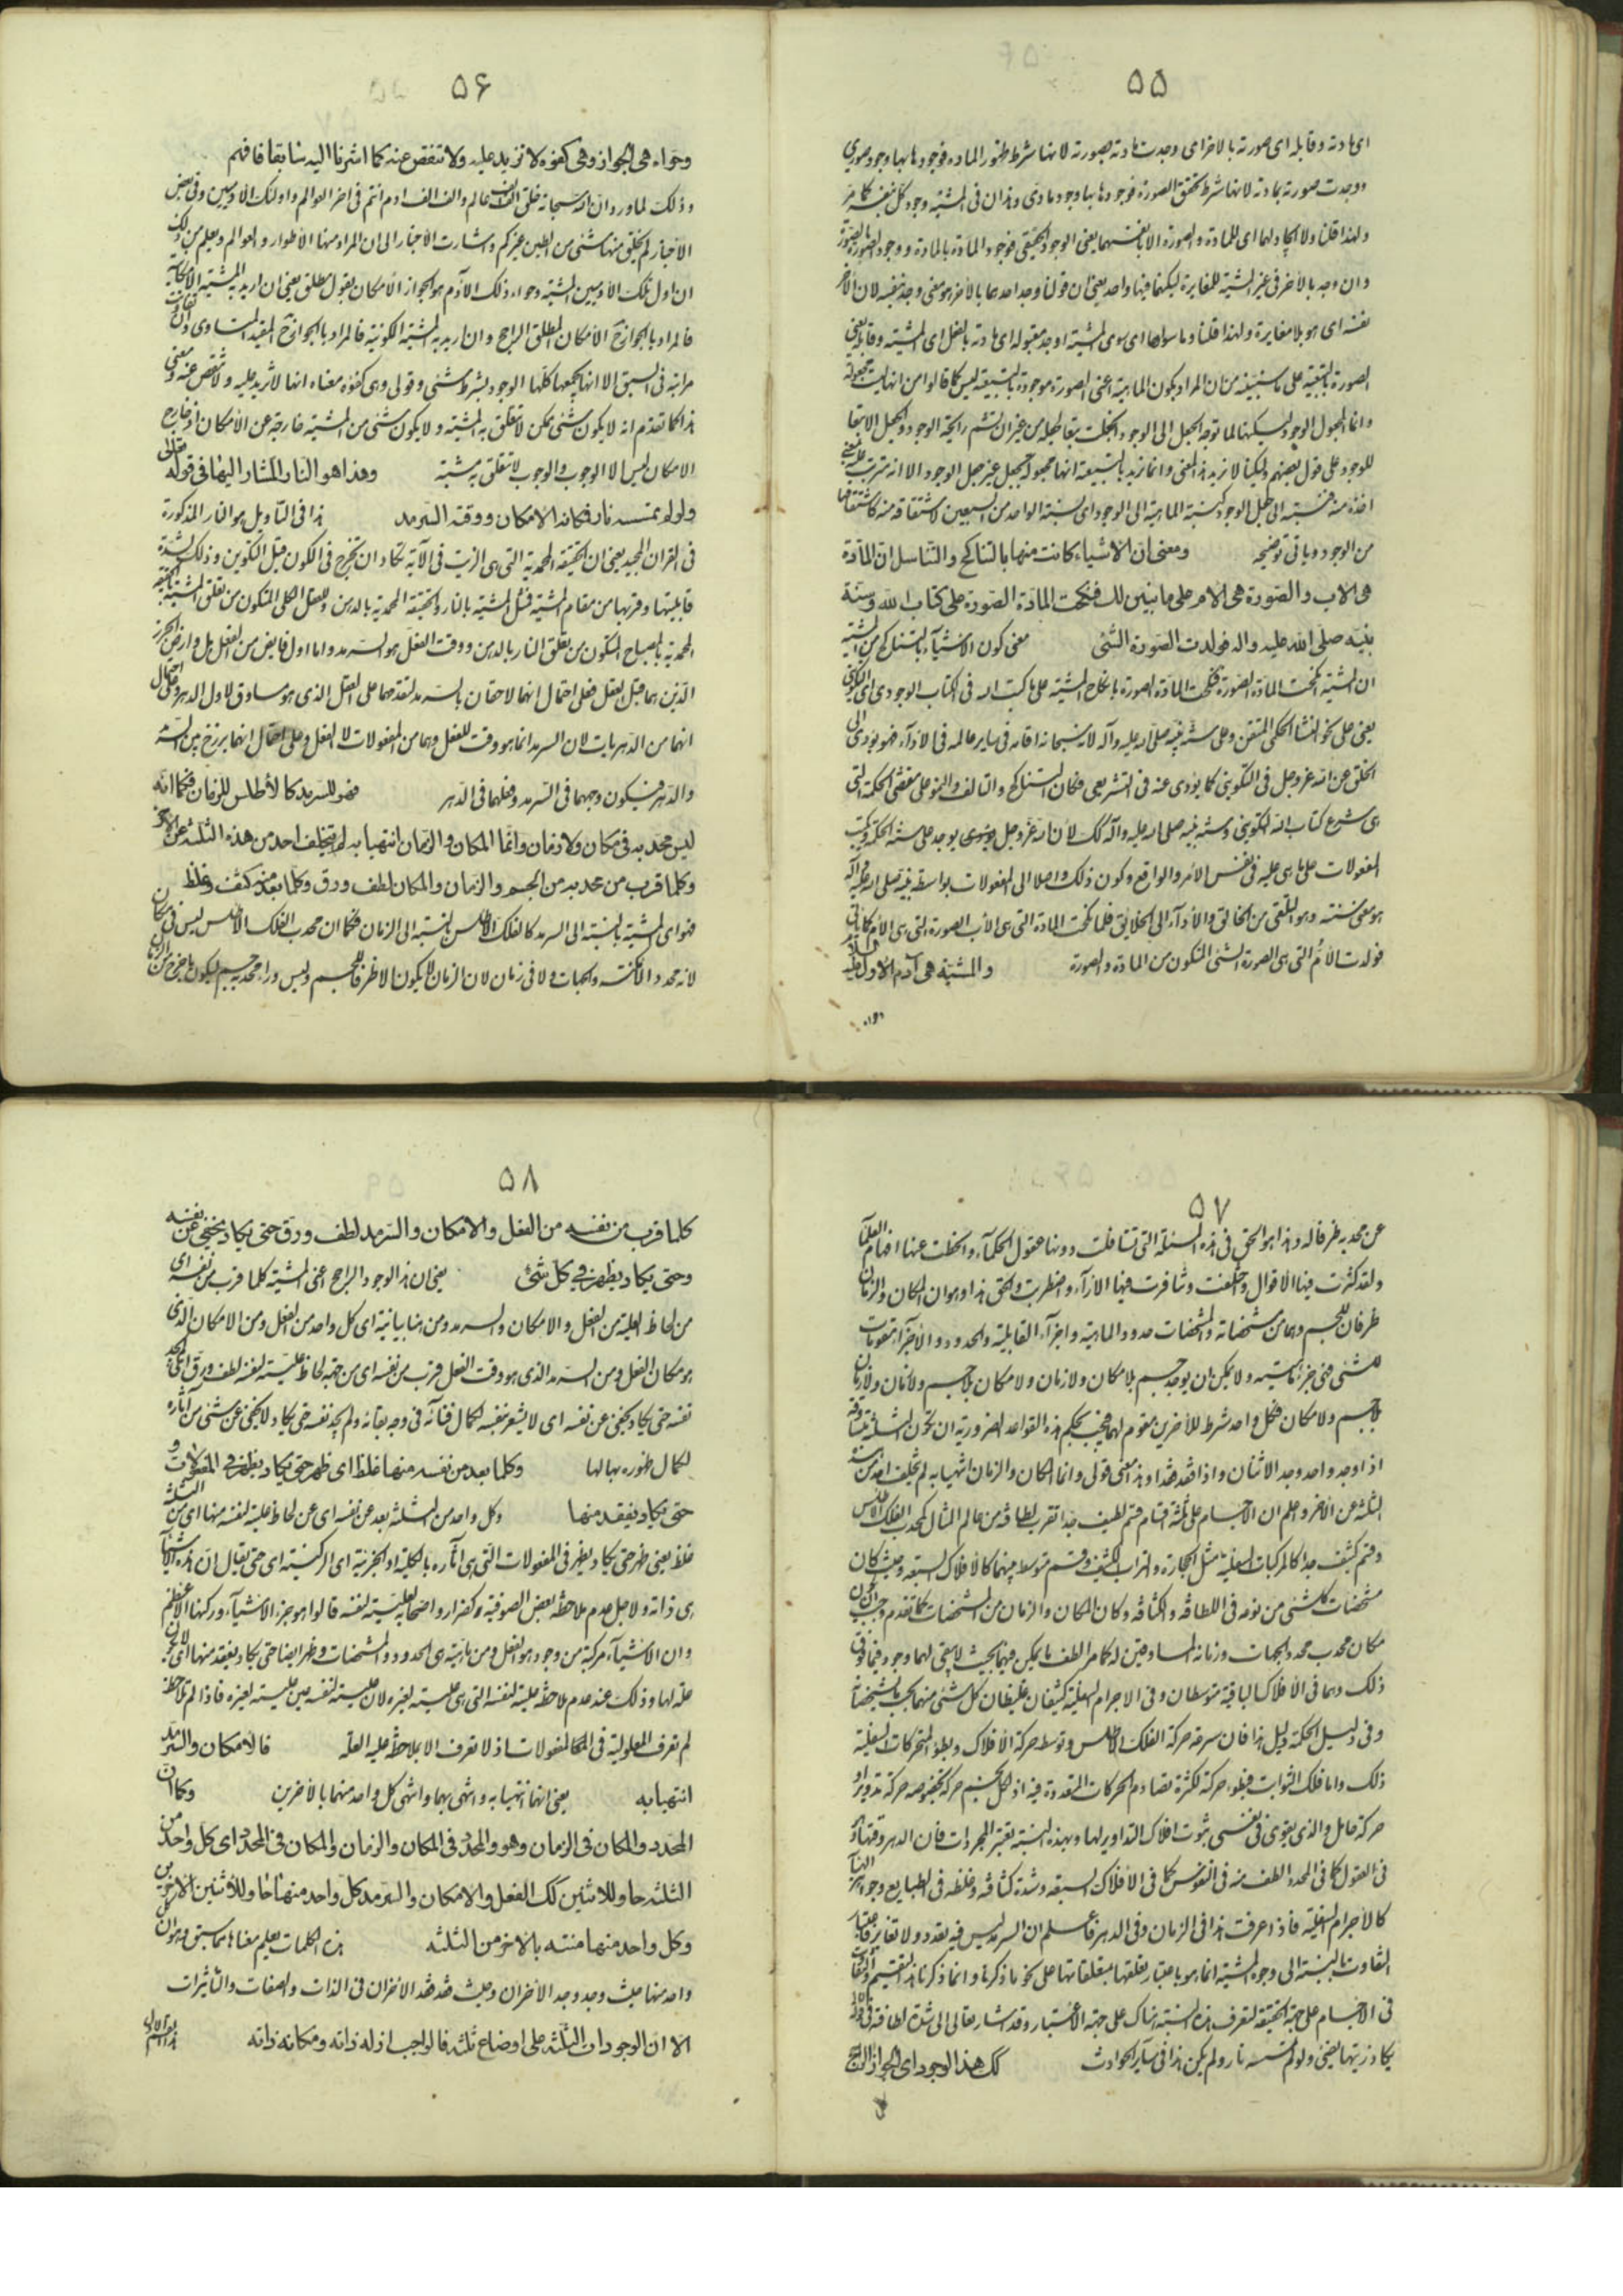 ۵۵
اى مادته وقابله اى صورته بالاخر اى وجدت مادته بصورته لانها شرط ظهور المادة فوجودها بها وجود صورى
ووجدت صورته بمادته لانها شرط تحقق الصورة فوجودها بها وجود مادى وهذان فى المشية وجود كل بنفسه كما مر
ولهذا قلنا ولا ايجاد لهما اى للمادة والصورة الا بانفسهما يعنى الوجود الحقيقى فوجود المادة بالمادة ووجود الصورة بالصورة
وان وجد بالاخر فى غير المشية للمغايرة لكنهما فيها واحد يعنى ان قولنا وجد احدهما بالاخر هو معنى وجد بنفسه لان الاخر
نفسه اى هو بلا مغايرة ولهذا قلنا وما سواها اى سوى المشية اوجد مقبوله اى مادته بالفعل اى المشية وقابله يعنى
الصورة بالتبعية على ما سنبينه من ان المراد بكون الماهية اعنى الصورة موجودة بالتبعية ليس كما قالوا من انها ليست مجعولة
وانما المجعول الوجود لكنها لما توجه الجعل الى الوجود انجعلت بتعا لجعله من غير ان تشم رائحة الوجود والجعل الا تبعا
للوجود على قول بعضهم ولكنا لا نريد هذا المعنى وانما نريد بالتبعية انها مجعولة بجعل غير جعل الوجود الا انه مترتب عليه بمعنى
اخذه منه فنسبته الى جعل الوجود كنسبة الماهية الى الوجود اى نسبة الواحد من السبعين لاشتقاقه منه كاشتقاقها
من الوجود وياتى توضيحه ومعنى ان الاشياء كانت منها بالتناكح والتناسل ان المادة
هى الاب والصورة هى الام على ما نبين لك فنكحت المادة الصورة على كتاب الله وسنة
نبيه صلى الله عليه واله فولدت الصورة الشئ معنى كون الاشياء بالتناكح من المشية
ان المشية انكحت المادة الصورة فنكحت المادة الصورة بانكاح المشية على ما كتب الله فى الكتاب الوجودى اى التكوينى
يعنى على نحو النشا الحكمى المتقن وعلى سنة نبيه صلى الله عليه وآله لانه سبحانه اقامه فى ساير عالمه فى الاداء فهو يؤدى الى
الخلق عن الله عز وجل فى التكوينى كما يؤدى عنه فى التشريعى فكان التناكح والتالف والنمو على مقتضى الحكمة التى
هى شرع كتاب الله التكوينى وسنة نبيه صلى الله عليه وآله كك لان الله عز وجل يوجد على سنة الحكمة ويكتب
المفعولات على ما هى عليه فى نفس الامر والواقع وكون ذلك واصلا الى المفعولات بواسطة نبيه صلى الله عليه وآله
هو معنى سنته وهو التلقى من الخالق والاداء الى الخلايق فلما نكحت المادة التى هى الاب الصورة التى هى الام
فولدت الام التى هى الصورة الشئ المتكون من المادة والصورة والمشية هى آدم الاول
وحواء
۵۶
وحواء هى الجواز وهى كفؤه لا تزيد عليه ولا تنقص عنه كما اشرنا اليه سابقا فافهم
وذلك لما ورد ان الله سبحانه خلق الف الف عالم والف الف ادم انتم فى اخر العوالم واولئك الادميين وفى بعض
الاخبار لم يخلق منها شئ من الطين غيركم واشارت الاخبار الى ان المراد منها الاطوار والعوالم ويعلم من ذلك
ان اول تلك الادميين المشية وحواء ذلك الآدم هو الجواز الامكان بقول مطلق يعنى ان اريد به المشية الامكانية
فالمراد بالجواز ح الامكان المطلق الراجح وان اريد به المشية الكونية فالمراد بالجواز ح المقيد المتساوى وان تفاوتت
مراتبه فى السبق الا انها يجمعها كلها الوجود بشرط شئ وقولى وهى كفؤه معناه انها لا تزيد عليه ولا تنقص عنه ومعنى
هذا كما تقدم انه لا يكون شئ ممكن لا تتعلق به المشية ولا يكون شئ من المشية خارجة عن الامكان اذ خارج
الامكان ليس الا الوجوب والوجوب لا تتعلق به مشية وهذا هو النار المشار اليها فى قوله تعالى
ولو لم تمسسه نار فكانه الامكان ووقته السرمد هذا فى التاويل هو النار المذكورة
فى القران المجيد يعنى ان الحقيقة المحمدية التى هى الزيت فى الآية تكاد ان تخرج فى الكون قبل التكوين وذلك لشدة
قابليتها وقربها من مقام المشية فمثل المشية بالنار والحقيقة المحمدية بالدهن والعقل الكلى المتكون من تعلق المشية بالحقيقة
المحمدية بالمصباح المتكون من تعلق النار بالدهن ووقت الفعل هو السرمد واما اول فايض من الفعل بل وارض الجرز
الذين هما قبل العقل فعلى احتمال انهما لاحقان بالسرمد لتقدمهما على العقل الذى هو مساوق لاول الدهر وعلى احتمال
انهما من الدهريات لان السرمد انما هو وقت للفعل وهما من المفعولات لا الفعل وعلى احتمال انهما برزخ بين السرمد
والدهر فيكون وجههما فى السرمد وخلفهما فى الدهر فهو للسرمد كالاطلس للزمان فكما انه
ليس محدبه فى مكان ولا زمان وانما المكان والزمان انتهيا به لم يتخلف احد من هذه الثلثة عن الاخر
وكلما قرب من محدبه من الجسم والزمان والمكان لطف ورق وكلما بعد منه كثف وغلظ
فهو اى المشية بالنسبة الى السرمد كالفلك الاطلس بالنسبة الى الزمان فكما ان محدب الفلك الاطلس ليس فى مكان
لانه محدد الامكنة والجهات ولا فى زمان لان الزمان لا يكون الا ظرفا للجسم وليس وراء محدبه جسم ليكون ما خرج من الزمان
۵۷
عن محدبه ظرفا له وهذا هو الحق فى هذه المسئلة التى تسافلت دونها عقول الحكماء وانحطت عنها افهام العلماء
ولقد كثرت فيها الاقوال واختلفت وتنافرت فيها الاراء واضطربت والحق هذا وهو ان المكان والزمان
ظرفان للجسم وهما من مشخصاته والمشخصات حدود الماهية واجزاء القابلية والحدود والاجزاء مقومات
للشئ فهى جزء ماهيته ولا يمكن ان يوجد جسم بلا مكان ولا زمان ولا مكان بلا جسم ولا زمان ولا زمان
بلا جسم ولا مكان فكل واحد شرط للاخرين مقوم لهما فيجب بحكم هذه القواعد الضرورية ان تكون الثلثة متساوقة
اذا وجد واحد وجد الاثنان واذا فقد فقدا وهذا معنى قولى وانما المكان والزمان انتهيا به لم يتخلف احد من هذه
الثلثة عن الاخر واعلم ان الاجسام على ثلثة اقسام قسم لطيف جدا تقرب لطافته من عالم المثال كمحدب الفلك الاطلس
وقسم كثيف جدا كالمركبات السفلية مثل الحجارة والتراب الكثيف وقسم متوسط بينهما كالافلاك السبعة وحيث كان
مشخصات كل شئ من نوعه فى اللطافة والكثافة وكان المكان والزمان من المشخصات كما تقدم وجب ان يكون
مكان محدب محدد الجهات وزمانه المساوقين له كما مر الطف ما يمكن فيهما بحيث لا يبقى لهما وجود فيما فوق
ذلك وهما فى الافلاك الباقية متوسطان وفى الاجرام السفلية كثيفان غليظان كل شئ منهما بحسب متشخصاته
وفى دليل الحكمة دليل هذا فان سرعة حركة الفلك الاطلس وتوسط حركة الافلاك وبطؤ المتحركات السفلية
ذلك واما فلك الثوابت فبطوء حركته لكثرة تصادم الحركات المتعددة فيه اذ لكل نجم حركة بخصوصه حركة تدوير او
حركة حامل والذى يقوى فى نفسى ثبوت افلاك التداوير لها وبهذه النسبة يعتبر المجردات فان الدهر وقتها
فى العقول كما فى المحدد الطف منه فى النفوس كما فى الافلاك السبعة وشدة كثافته وغلظه فى الطبايع وجواهر الهباء
كالاجرام السفلية فاذا عرفت هذا فى الزمان وفى الدهر فاعلم ان السرمد ليس فيه تعدد ولا تغاير فاعتبار
التفاوت بالنسبة الى وجوه المشية انما هو باعتبار تعلقها بمتعلقاتها على نحو ما ذكرنا وانما ذكرنا هذا التقسيم والتفاوت
فى الاجسام على جهة الحقيقة لتعرف هذه النسبة هناك على جهة الاعتبار وقد اشار تعالى الى شدة لطافته فى قوله
يكاد زيتها يضئ ولو لم تمسسه نار ولم يكن هذا فى ساير الحوادث كك هذا الوجود اى الجواز الراجح
۵۸
كلما قرب من نفسه من الفعل والامكان والسرمد لطف ورق حتى يكاد يخفى عن نفسه
وحتى يكاد يظهر فى كل شئ يعنى ان هذا الوجود الراجح اعنى المشية كلما قرب من نفسه اى
من لحاظ العلية من الفعل والامكان والسرمد ومن هنا بيانية اى كل واحد من الفعل ومن الامكان الذى
هو مكان الفعل ومن السرمد الذى هو وقت الفعل قرب من نفسه اى من جهة لحاظ عليته لنفسه لطف ورق
نفسه حتى يكاد يخفى عن نفسه اى لا يشعر بنفسه لكمال فنائه فى وجه بقائه ولم يجد نفسه حتى يكاد لا يخفى عن شئ من آثاره
لكمال ظهوره بها لها وكلما بعد من نفسه منها غلظ اى ظهر حتى يكاد يظهر فى المفعولات و
حتى يكاد يفقد منها وكل واحد من الثلثة بعد عن نفسه اى عن لحاظ علية لنفسه منها اى من الثلثة
غلظ يعنى ظهر حتى يكاد يظهر فى المفعولات التى هى آثاره بالكلية او الجزئية اى الركنية اى حتى يقال ان هذه الاشياء
هى ذاته ولاجل عدم ملاحظة بعض الصوفية وكضرار واصحابه لعليته لنفسه قالوا هو جزء الاشياء وركنها الاعظم
وان الاشياء مركبة من وجود هو الفعل ومن ماهية هى الحدود والمشخصات وظهر ايضا حتى يكاد يفقد منها
علة لها وذلك عند عدم ملاحظة عليته لنفسه التى هى علية لغيره لان عليته لنفسه عين عليته لغيره فاذا لم تلاحظ
لم تعرف المعلولية فى المفعولات اذ لا تعرف الا بملاحظة علية العلة فالامكان والسرمد
انتهيا به يعنى انهما انتهيا به وانتهى بهما وانتهى كل واحد منهما بالاخرين وكما ان
المحدد والمكان فى الزمان وهو والمحدد فى المكان والزمان والمكان فى المحدد اى كل واحد من
الثلثة حاو للاثنين كك الفعل والامكان والسرمد كل واحد منها حاو للاثنين الاخرين
وكل واحد منها منته بالاخر من الثلثة هذه الكلمات يعلم معناها مما سبق وهو ان كل
واحد منها حيث وجد وجد الاخران وحيث فقد فقد الاخران فى الذات والصفات والتاثيرات
الا ان الوجودات الثلثة على اوضاع ثلثة فالواجب ازله ذاته ومكانه ذاته